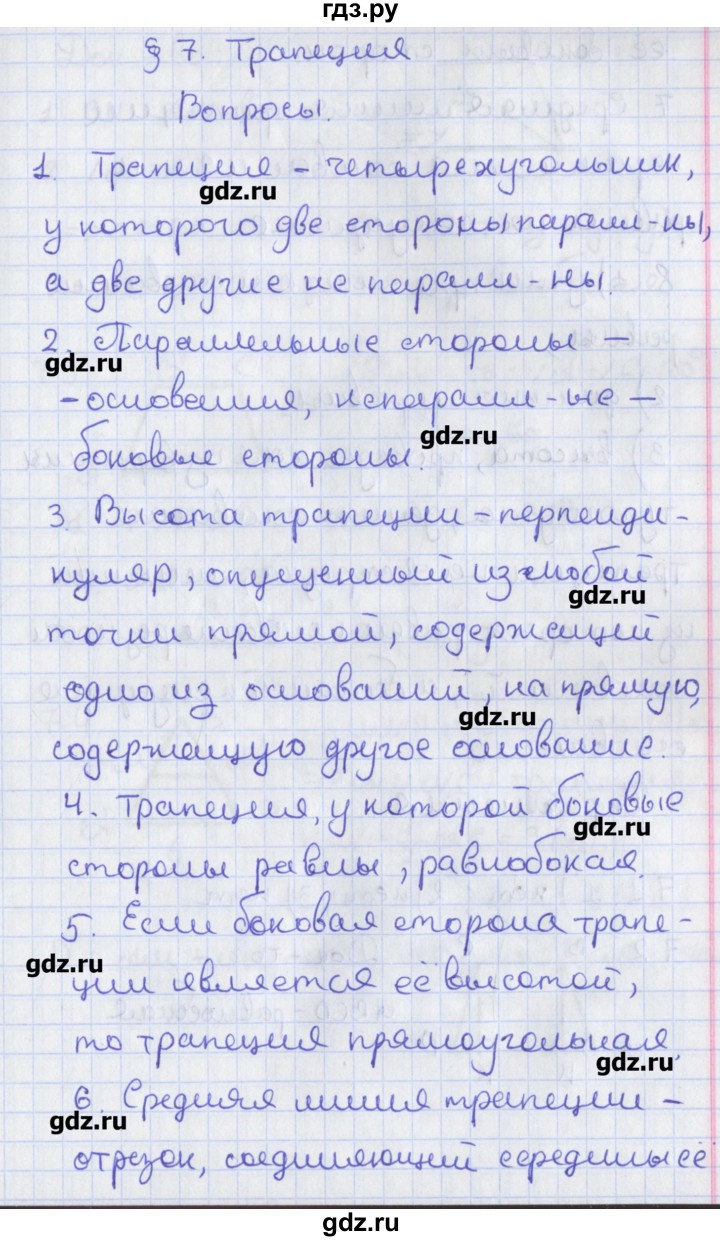 гдз.ру
§ 7. Трапеция
Вопросы.
1. Трапеция – четырехугольник,
gdz.ru
у которого две стороны паралл-ны,
а две другие не паралл-ны.
2. Параллельные стороны –
gdz.ru
– основания, непаралл-ые –
gdz.ru
боковые стороны.
3. Высота трапеции – перпенди-
куляр, опущенный из любой
gdz.ru
точки прямой, содержащей
одно из оснований, на прямую,
gdz.ru
содержащую другое основание.
4. Трапеция, у которой боковые
gdz.ru
стороны равны, равнобокая.
5. Если боковая сторона трапе-
gdz.ru
ции является её высотой,
то трапеция прямоугольная.
gdz.ru
6. Средняя линия трапеции –
gdz.ru
отрезок, соединяющий середины её
gdz.ru